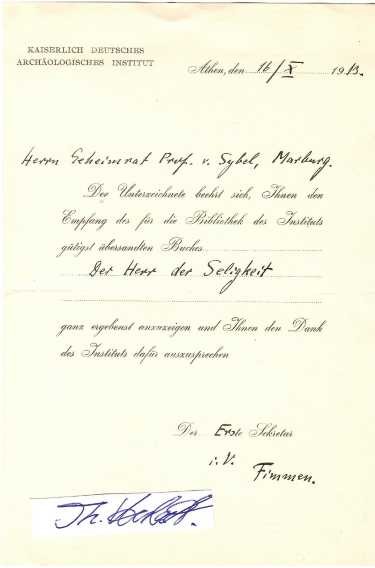 KAISERLICH DEUTSCHES
ARCHÄOLOGISCHES INSTITUT
Athen, den 16/X 1913.
Herrn Geheimrat Prof. v. Sybel, Marburg.
Der Unterzeichnete beehrt sich, Ihnen den
Empfang des für die Bibliothek des Instituts
gütigst übersandten Buches
Der Herr der Seligkeit
ganz ergebenst anzuzeigen und Ihnen den Dank
des Instituts dafür auszusprechen
Der Erste Sekretar
i. V.
Fimmen.
Th.